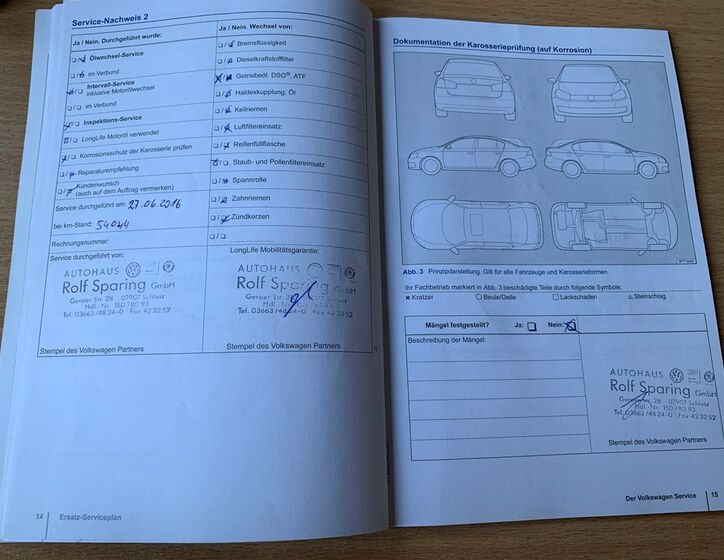 Service-Nachweis 2
Ja / Nein. Durchgeführt wurde:
Ölwechsel-Service
im Verbund
Intervall-Service
inklusive Motorölwechsel
im Verbund
Inspektions-Service
LongLife Motoröl verwendet
Korrosionsschutz der Karosserie prüfen
Reparaturempfehlung
Kundenwunsch
(auch auf dem Auftrag vermerken)
Service durchgeführt am: 27.06.2016
bei km-Stand: 54044
Rechnungsnummer:
Service durchgeführt von:
AUTOHAUS
Rolf Sparing GmbH
Geraer Str. 28 07907 Schleiz
Hdl.-Nr. 150 780 93
Tel. 03663/48 24-0 Fax 42 32 52
Stempel des Volkswagen Partners
Ja / Nein. Wechsel von:
Bremsflüssigkeit
Dieselkraftstofffilter
Getriebeöl: DSG®, ATF
Haldexkupplung: Öl
Keilriemen
Luftfiltereinsatz
Reifenfüllflasche
Staub- und Pollenfiltereinsatz
Spannrolle
Zahnriemen
Zündkerzen
LongLife Mobilitätsgarantie:
AUTOHAUS
Rolf Sparing GmbH
Geraer Str. 28 07907 Schleiz
Hdl.-Nr. 150 780 93
Tel. 03663/48 24-0 Fax 42 32 52
Stempel des Volkswagen Partners
14 Ersatz-Serviceplan
Dokumentation der Karosserieprüfung (auf Korrosion)
Abb. 3 Prinzipdarstellung. Gilt für alle Fahrzeuge und Karosserieformen.
Ihr Fachbetrieb markiert in Abb. 3 beschädigte Teile durch folgende Symbole:
x Kratzer ○ Beule/Delle □ Lackschaden △ Steinschlag
Mängel festgestellt? Ja: Nein:
Beschreibung der Mängel:
AUTOHAUS
Rolf Sparing GmbH
Geraer Str. 28 07907 Schleiz
Hdl.-Nr. 150 780 93
Tel. 03663/48 24-0 Fax 42 32 52
Stempel des Volkswagen Partners
Der Volkswagen Service 15